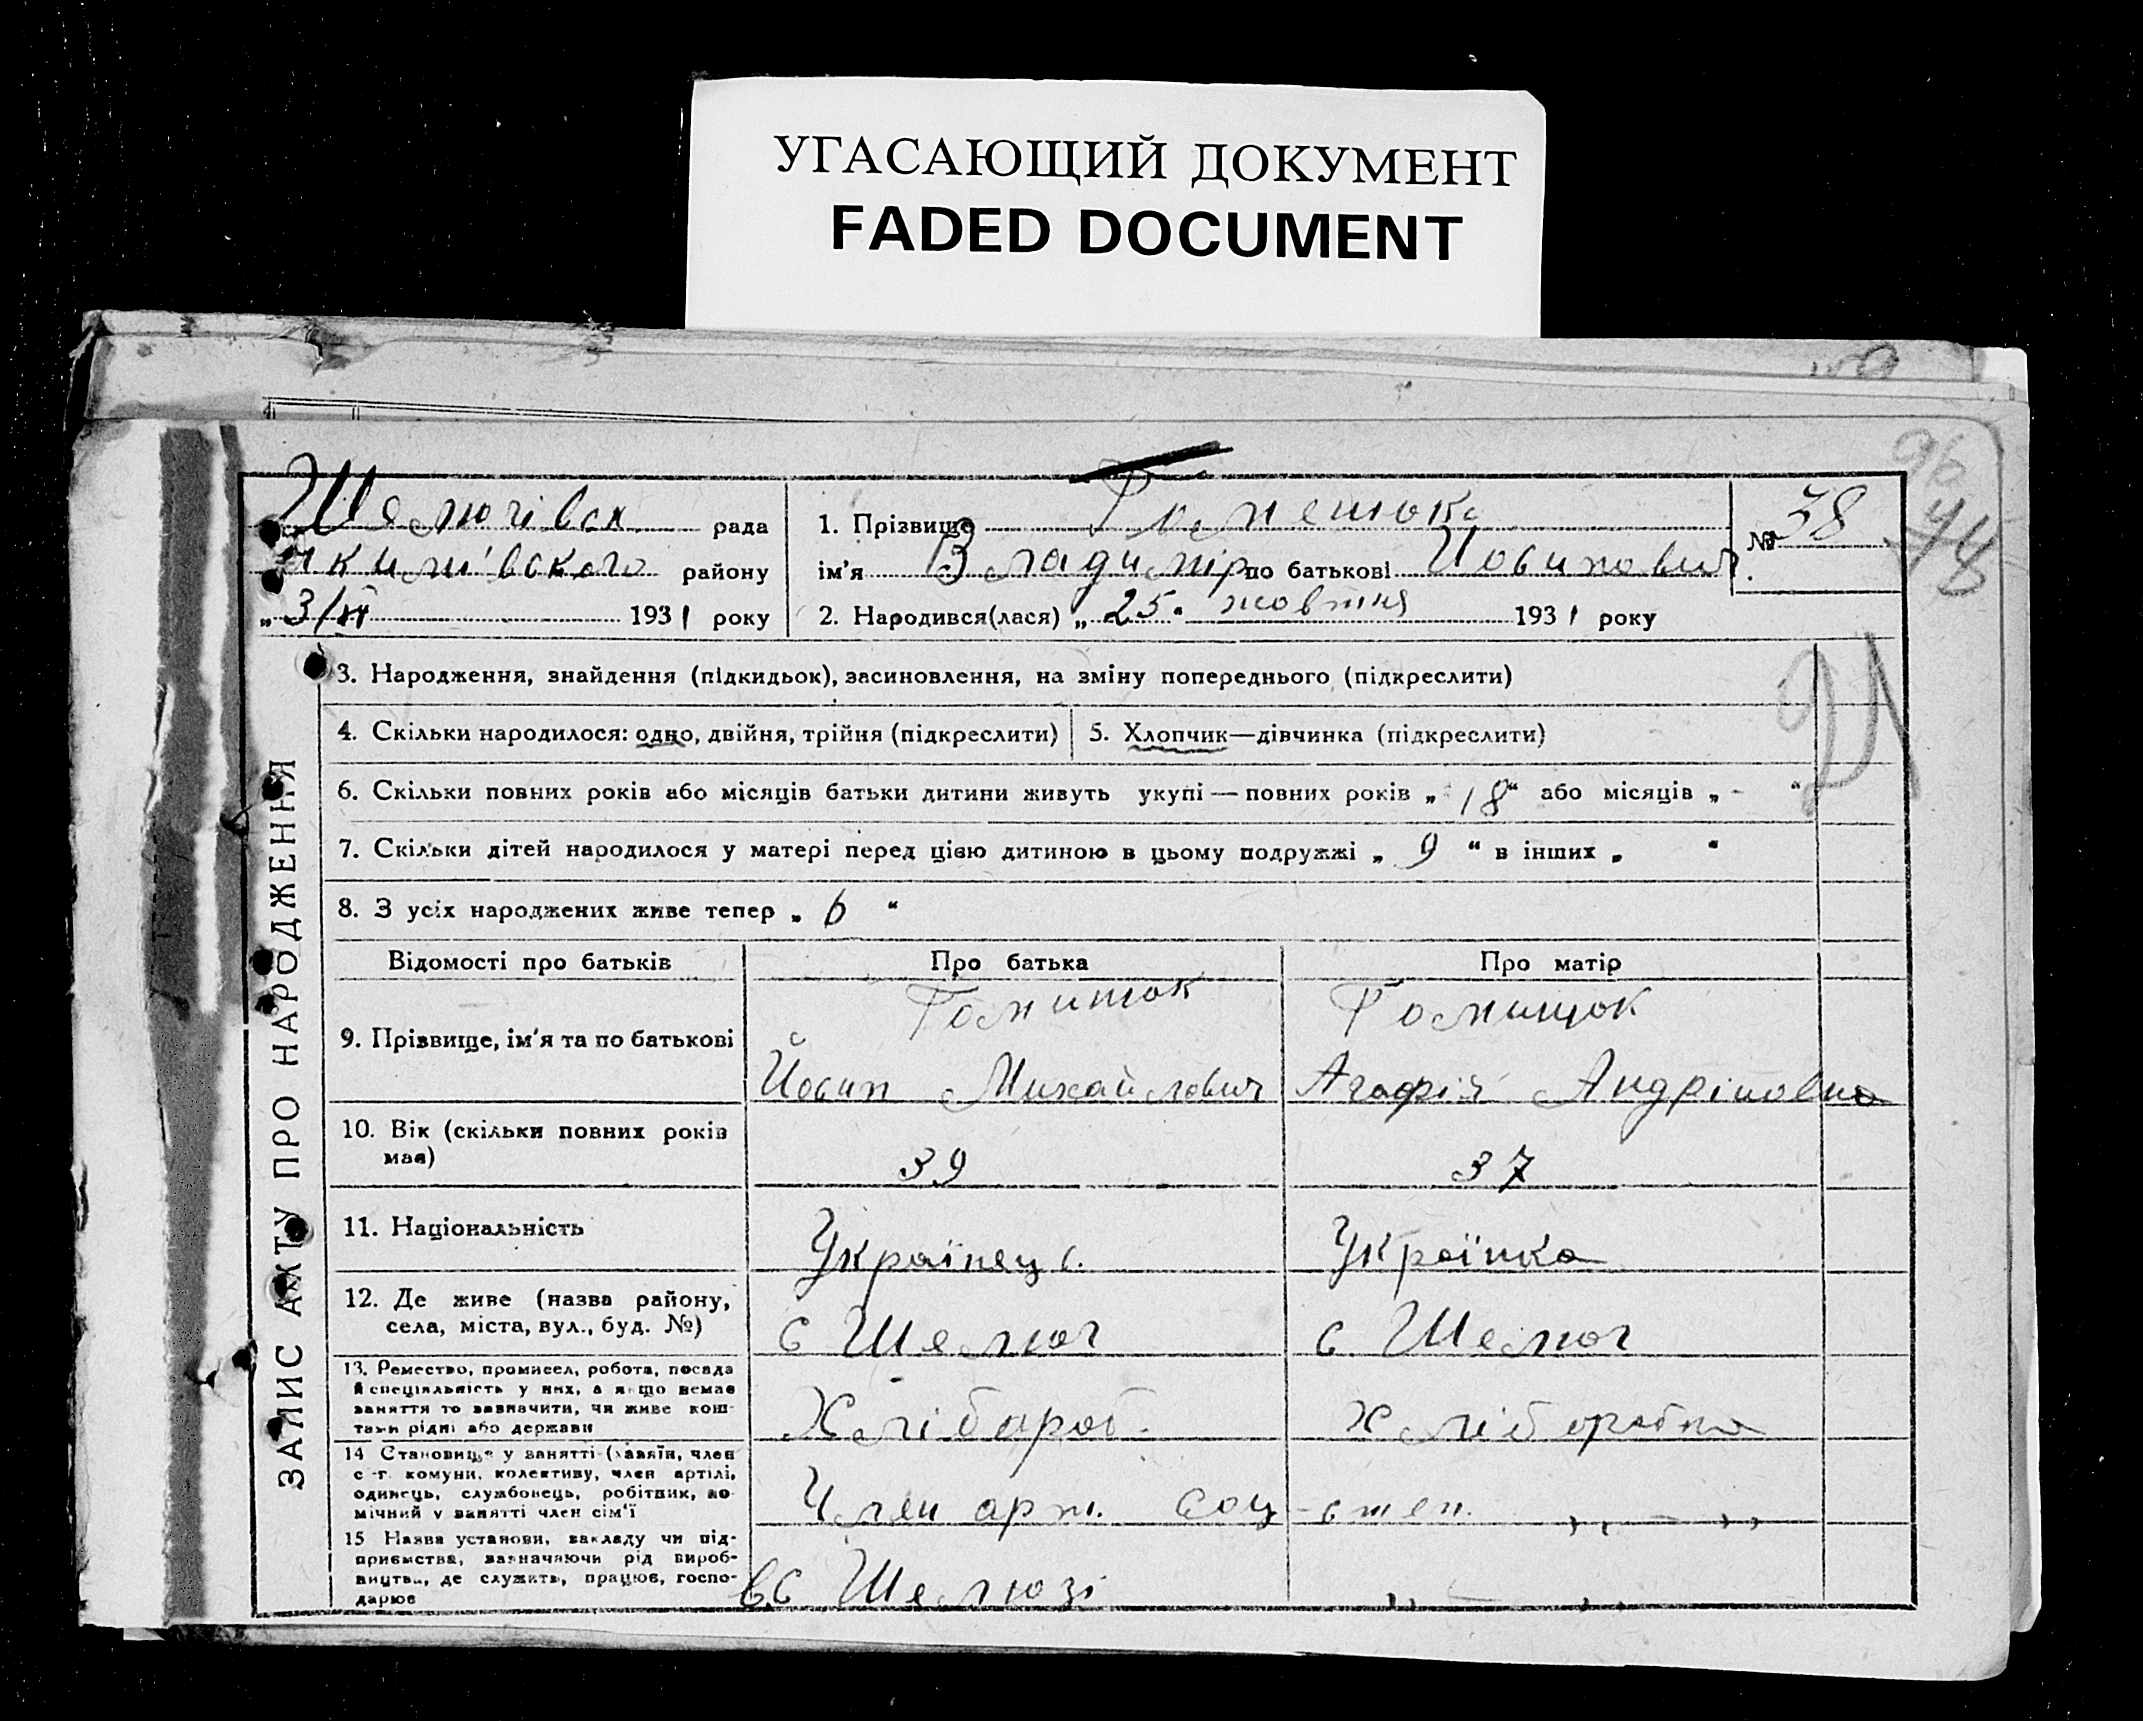 УГАСАЮЩИЙ ДОКУМЕНТ
FADED DOCUMENT
Шелюгівськ рада
Якимівського району
„ 3/XI 1931 року
1. Прізвище
ім'я Владимір по батькові Йосипович
2. Народився(лася) „ 25 " жовтня 1931 року
№ 38
3. Народження, знайдення (підкидьок), засиновлення, на зміну попереднього (підкреслити)
4. Скільки народилося: одно, двійня, трійня (підкреслити)
5. Хлопчик—дівчинка (підкреслити)
6. Скільки повних років або місяців батьки дитини живуть укупі — повних років „ 18 “ або місяців „ - “
7. Скільки дітей народилося у матері перед цією дитиною в цьому подружжі „ 9 “ в інших „ “
8. З усіх народжених живе тепер „ 6 “
ЗАПИС АКТУ ПРО НАРОДЖЕННЯ
Відомості про батьків Про батька Про матір
9. Прізвище, ім'я та по батькові
Йосип Михайлович
Агафія Андріповна
10. Вік (скільки повних років має)
39
37
11. Національність
Українець.
Українка
12. Де живе (назва району,
села, міста, вул., буд. №)
с Шелюг
с. Шелюг
13. Ремество, промисел, робота, посада
й спеціяльність у них, а якщо немає
заняття то зазначити, чи живе кош-
тами рідні або держави
Хлібароб.
Хліборобка
14 Становище у занятті (хазяїн, член
с.-г. комуни, колективу, член артілі,
одинець, службовець, робітник, по-
мічний у занятті член сім'ї
Член арт. Соц-степ. ,, — ,,
15 Назва установи, закладу чи під-
приємства, зазначаючи рід вироб-
ництва, де служить, працює, госпо-
дарює
в с Шелюзі ,, — ,,